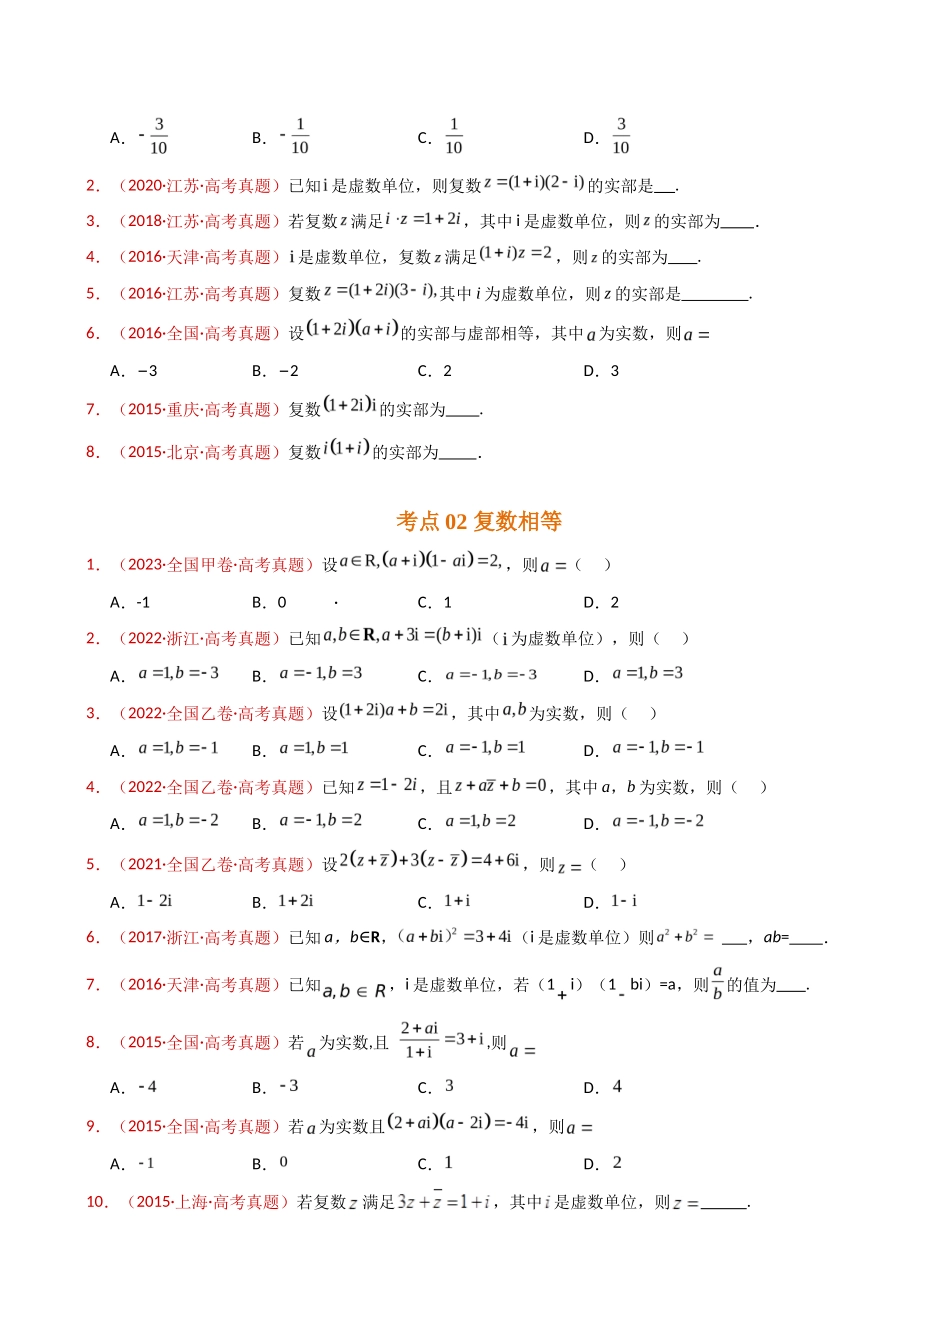 A．- 3/10 B．- 1/10 C．1/10 D．3/10
2．（2020·江苏·高考真题）已知i是虚数单位，则复数z=(1+i)(2-i)的实部是___.
3．（2018·江苏·高考真题）若复数z满足i·z=1+2i，其中i是虚数单位，则z的实部为____．
4．（2016·天津·高考真题）i是虚数单位，复数z满足(1+i)z=2，则z的实部为____.
5．（2016·江苏·高考真题）复数z=(1+2i)(3-i),其中i为虚数单位，则z的实部是________.
6．（2016·全国·高考真题）设(1+2i)(a+i)的实部与虚部相等，其中a为实数，则a=
A．−3 B．−2 C．2 D．3
7．（2015·重庆·高考真题）复数(1+2i)i的实部为____.
8．（2015·北京·高考真题）复数i(1+i)的实部为_____．
考点 02 复数相等
1．（2023·全国甲卷·高考真题）设a∈R,(a+i)(1-ai)=2,，则a=（ ）
A．-1 B．0 · C．1 D．2
2．（2022·浙江·高考真题）已知a,b∈R,a+3i=(b+i)i（i为虚数单位），则（ ）
A．a=1,b=-3 B．a=-1,b=3 C．a=-1,b=-3 D．a=1,b=3
3．（2022·全国乙卷·高考真题）设(1+2i)a+b=2i，其中a,b为实数，则（ ）
A．a=1,b=-1 B．a=1,b=1 C．a=-1,b=1 D．a=-1,b=-1
4．（2022·全国乙卷·高考真题）已知z=1-2i，且z+az̅+b=0，其中a，b为实数，则（ ）
A．a=1,b=-2 B．a=-1,b=2 C．a=1,b=2 D．a=-1,b=-2
5．（2021·全国乙卷·高考真题）设2(z+z̅)+3(z-z̅)=4+6i，则z=（ ）
A．1-2i B．1+2i C．1+i D．1-i
6．（2017·浙江·高考真题）已知a，b∈R，（a+bi）²=3+4i（i是虚数单位）则a²+b²=___，ab=____．
7．（2016·天津·高考真题）已知a,b∈R，i是虚数单位，若（1+i）（1-bi）=a，则a/b的值为____.
8．（2015·全国·高考真题）若a为实数,且 (2+ai)/(1+i)=3+i,则a=
A．-4 B．-3 C．3 D．4
9．（2015·全国·高考真题）若a为实数且(2+ai)(a-2i)=-4i，则a=
A．-1 B．0 C．1 D．2
10．（2015·上海·高考真题）若复数z满足3z+z̅=1+i，其中i是虚数单位，则z=_____.